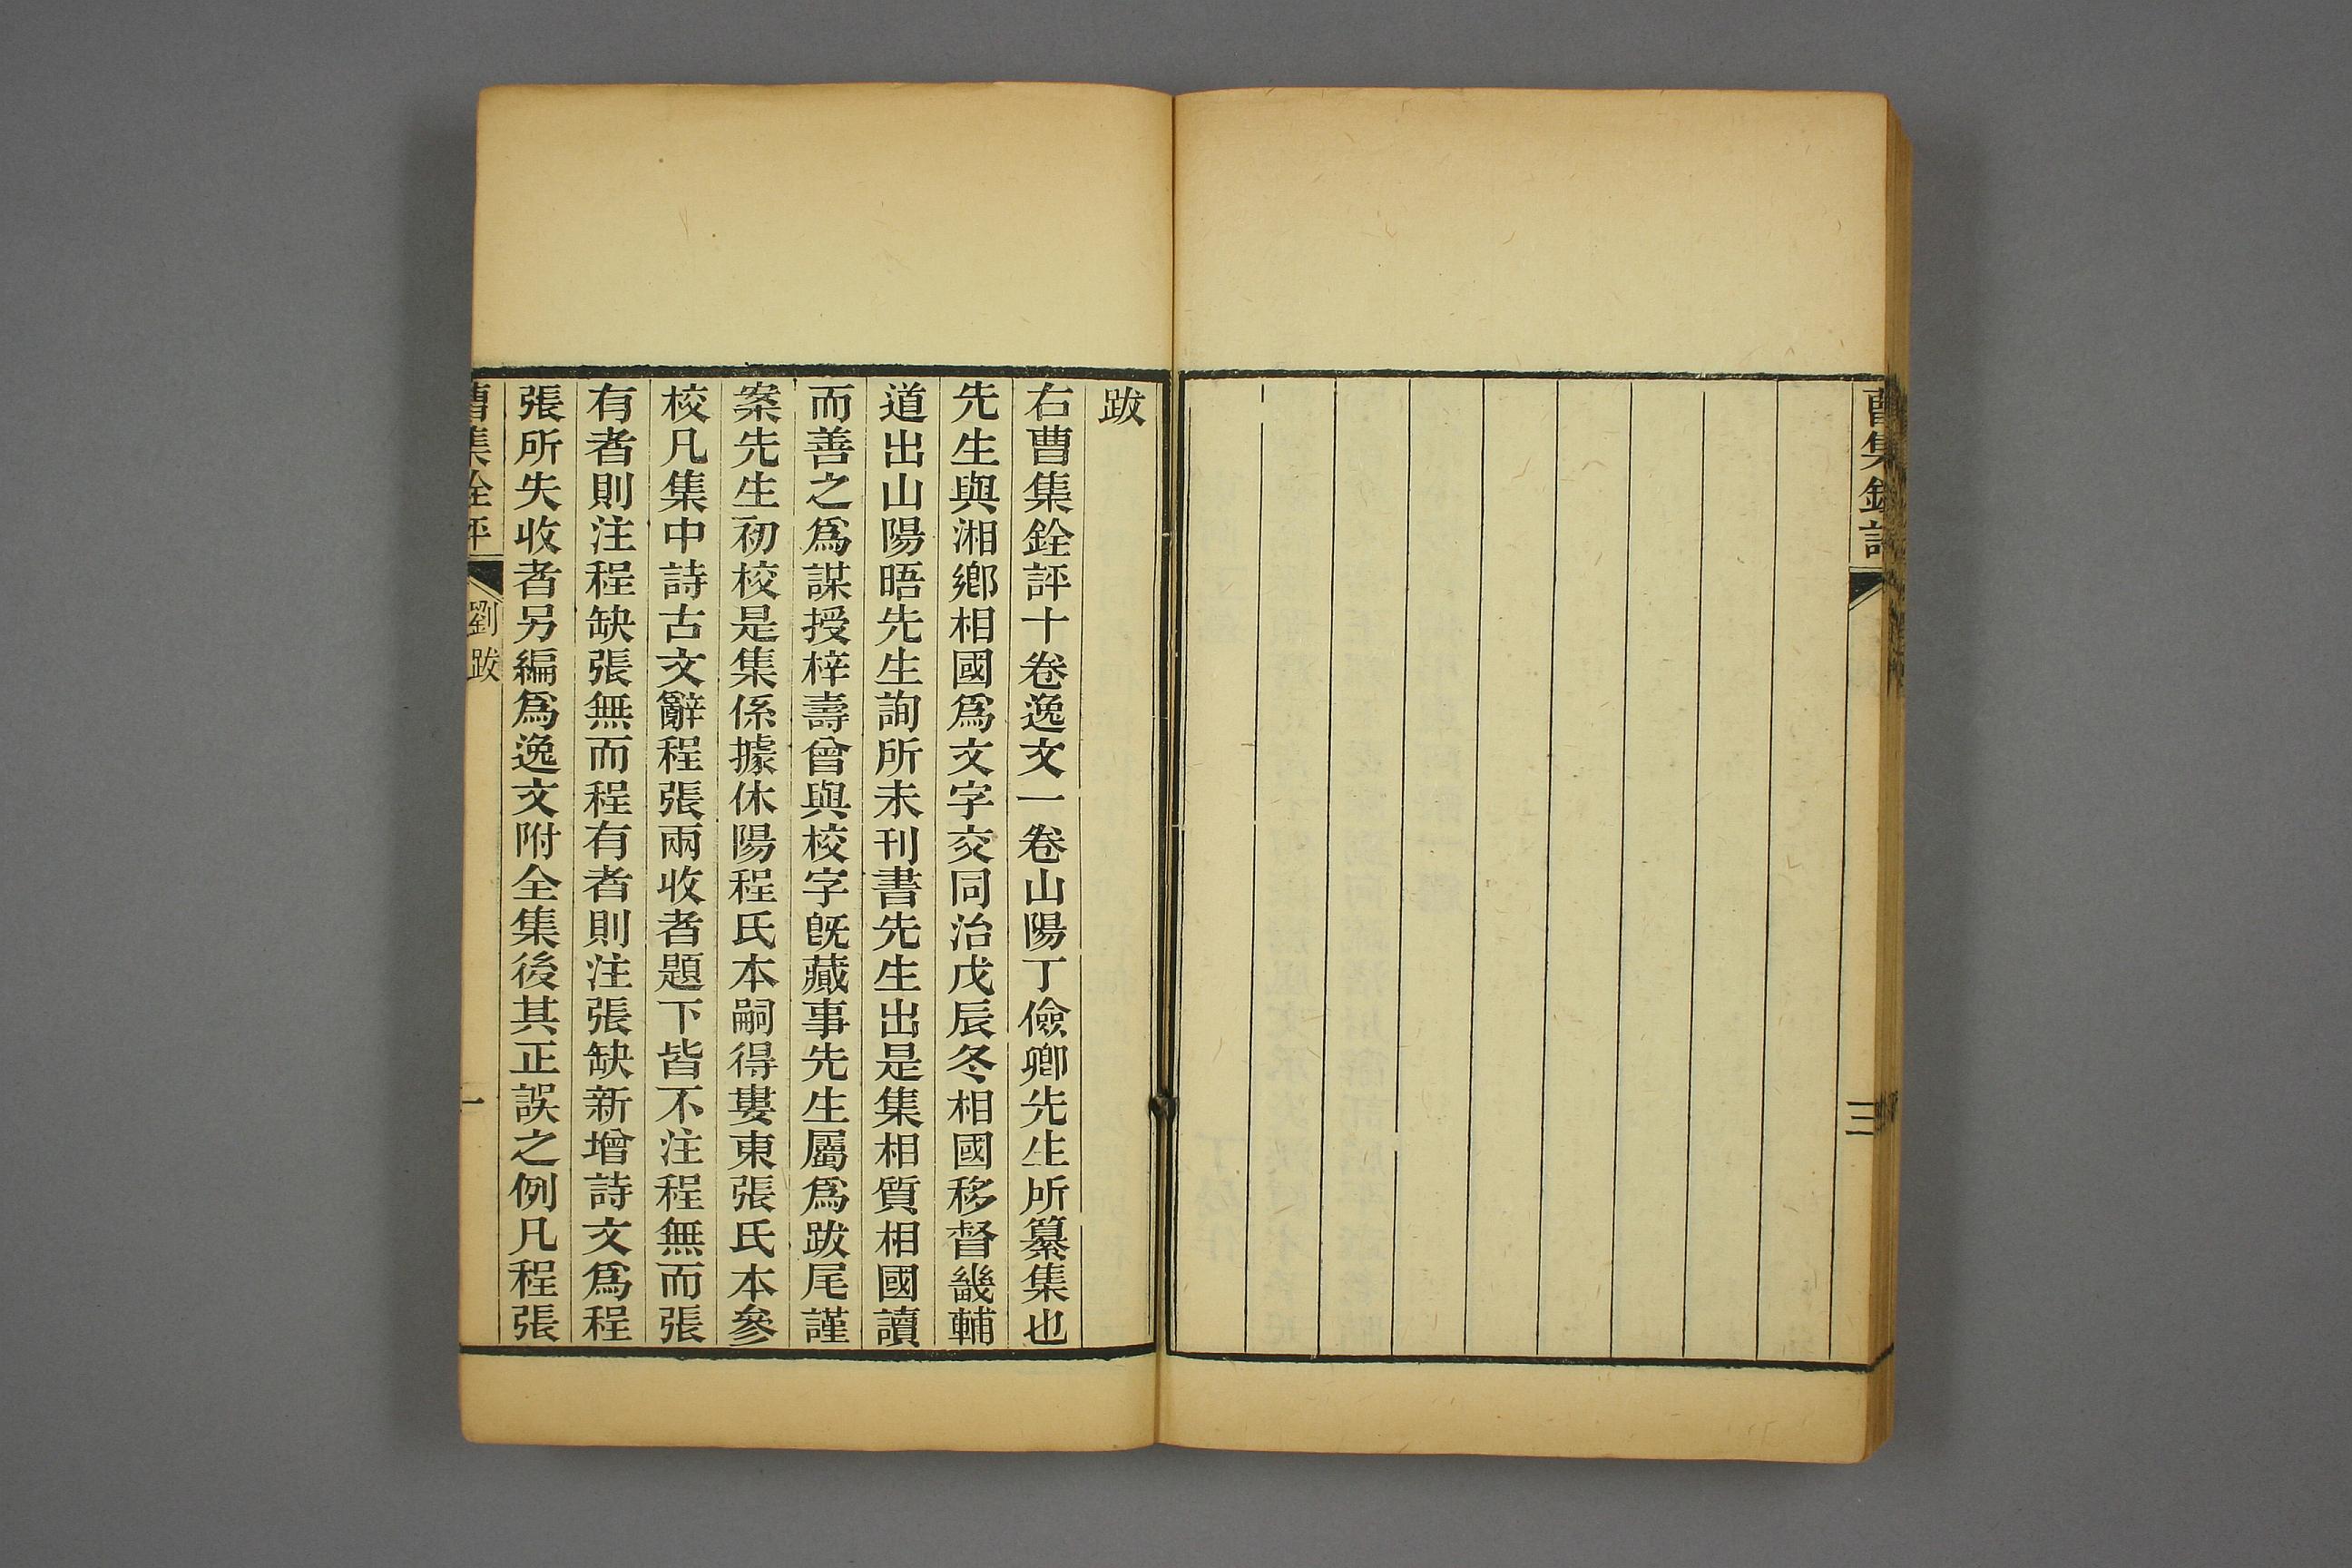 曹集銓評
三
跋
右曹集銓評十卷逸文一卷山陽丁儉卿先生所纂集也
先生與湘鄉相國爲文字交同治戊辰冬相國移督畿輔
道出山陽晤先生詢所未刊書先生出是集相質相國讀
而善之爲謀授梓壽曾與校字旣藏事先生屬爲跋尾謹
案先生初校是集係據休陽程氏本嗣得婁東張氏本參
校凡集中詩古文辭程張兩收者題下皆不注程無而張
有者則注程缺張無而程有者則注張缺新增詩文爲程
張所失收者另編爲逸文附全集後其正誤之例凡程張
曹集銓評
劉跋
一